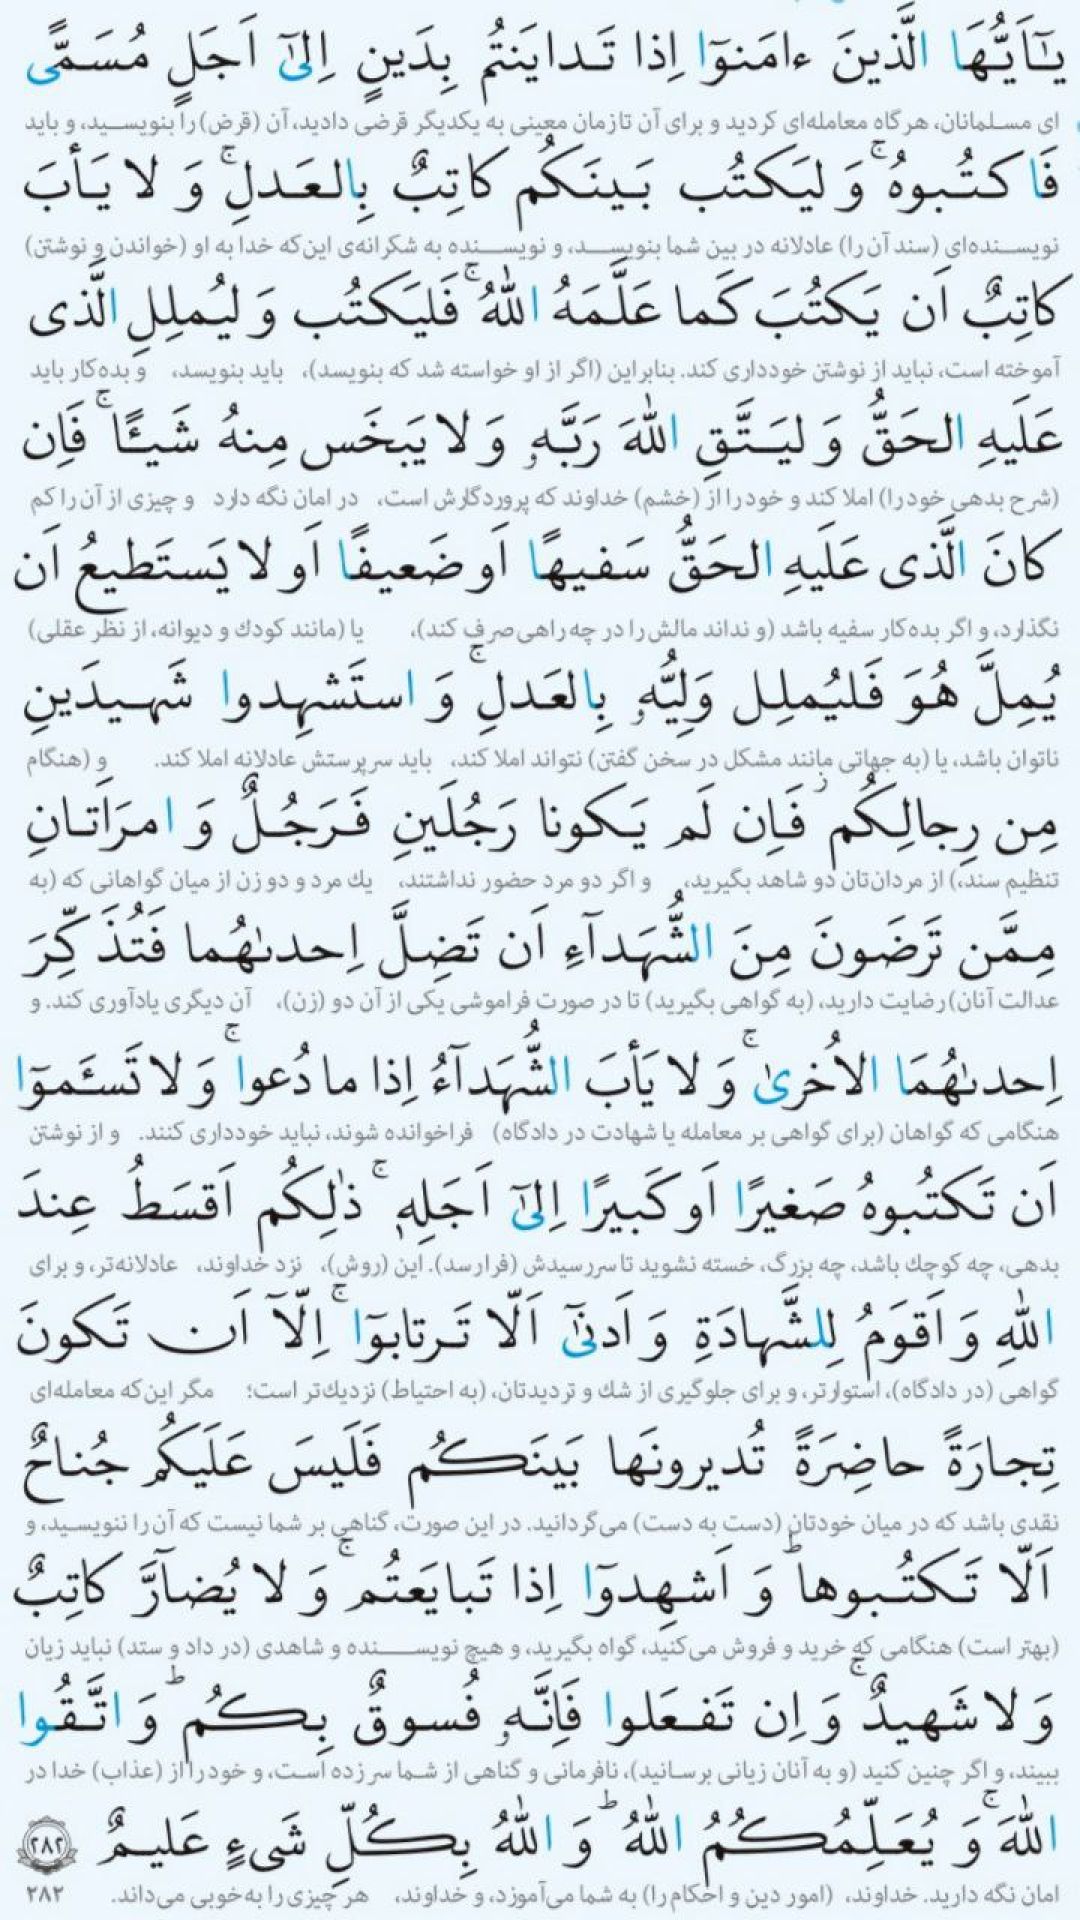 يٰٓاَيُّهَا الَّذينَ ءامَنوٓا اِذا تَدايَنتُم بِدَينٍ اِلىٰٓ اَجَلٍ مُسَمًّى
ای مسلمانان، هرگاه معامله‌ای کردید و برای آن تا زمان معینی به یکدیگر قرضی دادید، آن (قرض) را بنویسید، و باید
فَاكتُبوهُ ۚ وَ ليَكتُب بَينَكُم كاتِبٌ بِالعَدلِ ۚ وَ لا يَأبَ
نویسنده‌ای (سند آن را) عادلانه در بین شما بنویسد، و نویسنده به شکرانه‌ی این‌که خدا به او (خواندن و نوشتن)
كاتِبٌ اَن يَكتُبَ كَما عَلَّمَهُ اللّٰهُ ۚ فَليَكتُب وَ ليُملِلِ الَّذى
آموخته است، نباید از نوشتن خودداری کند. بنابراین (اگر از او خواسته شد که بنویسد)، باید بنویسد، و بده‌کار باید
عَلَيهِ الحَقُّ وَ ليَتَّقِ اللّٰهَ رَبَّهٖ وَ لا يَبخَس مِنهُ شَيـًٔا ۚ فَاِن
(شرح بدهی خود را) املا کند و خود را از (خشم) خداوند که پروردگارش است، در امان نگه دارد و چیزی از آن را کم
كانَ الَّذى عَلَيهِ الحَقُّ سَفيهًا اَو ضَعيفًا اَو لا يَستَطيعُ اَن
نگذارد، و اگر بده‌کار سفیه باشد (و نداند مالش را در چه راهی صرف کند)، یا (مانند کودك و دیوانه، از نظر عقلی)
يُمِلَّ هُوَ فَليُملِل وَلِيُّهٗ بِالعَدلِ ۚ وَ استَشهِدوا شَهيدَينِ
ناتوان باشد، یا (به جهاتی مانند مشکل در سخن گفتن) نتواند املا کند، باید سرپرستش عادلانه املا کند. و (هنگام
مِن رِجالِكُم ۖ فَاِن لَم يَكونا رَجُلَينِ فَرَجُلٌ وَ امرَاَتانِ
تنظیم سند،) از مردان‌تان دو شاهد بگیرید، و اگر دو مرد حضور نداشتند، یك مرد و دو زن از میان گواهانی که (به
مِمَّن تَرضَونَ مِنَ الشُّهَدآءِ اَن تَضِلَّ اِحدىٰهُما فَتُذَكِّرَ
عدالت آنان) رضایت دارید، (به گواهی بگیرید) تا در صورت فراموشی یکی از آن دو (زن)، آن دیگری یادآوری کند. و
اِحدىٰهُمَا الاُخرىٰ ۚ وَ لا يَأبَ الشُّهَدآءُ اِذا ما دُعوا ۚ وَ لا تَسـَٔموٓا
هنگامی که گواهان (برای گواهی بر معامله یا شهادت در دادگاه) فراخوانده شوند، نباید خودداری کنند. و از نوشتن
اَن تَكتُبوهُ صَغيرًا اَو كَبيرًا اِلىٰٓ اَجَلِهٖ ۚ ذٰلِكُم اَقسَطُ عِندَ
بدهی، چه کوچك باشد، چه بزرگ، خسته نشوید تا سررسیدش (فرا رسد). این (روش)، نزد خداوند، عادلانه‌تر، و برای
اللّٰهِ وَ اَقوَمُ لِلشَّهادَةِ وَ اَدنىٰٓ اَلّا تَرتابوٓا ۚ اِلّآ اَن تَكونَ
گواهی (در دادگاه)، استوارتر، و برای جلوگیری از شك و تردیدتان، (به احتیاط) نزدیك‌تر است؛ مگر این‌که معامله‌ای
تِجارَةً حاضِرَةً تُديرونَها بَينَكُم فَلَيسَ عَلَيكُم جُناحٌ
نقدی باشد که در میان خودتان (دست به دست) می‌گردانید. در این صورت، گناهی بر شما نیست که آن را ننویسید، و
اَلّا تَكتُبوها ۗ وَ اَشهِدوٓا اِذا تَبايَعتُم ۚ وَ لا يُضآرَّ كاتِبٌ
(بهتر است) هنگامی که خرید و فروش می‌کنید، گواه بگیرید، و هیچ نویسنده و شاهدی (در داد و ستد) نباید زیان
وَ لا شَهيدٌ ۚ وَ اِن تَفعَلوا فَاِنَّهٗ فُسوقٌ بِكُم ۗ وَ اتَّقُوا
ببیند، و اگر چنین کنید (و به آنان زیانی برسانید)، نافرمانی و گناهی از شما سر زده است، و خود را از (عذاب) خدا در
اللّٰهَ ۚ وَ يُعَلِّمُكُمُ اللّٰهُ ۗ وَ اللّٰهُ بِكُلِّ شَىءٍ عَليمٌ ٢٨٢
امان نگه دارید. خداوند، (امور دین و احکام را) به شما می‌آموزد، و خداوند، هر چیزی را به‌خوبی می‌داند. ٢٨٢